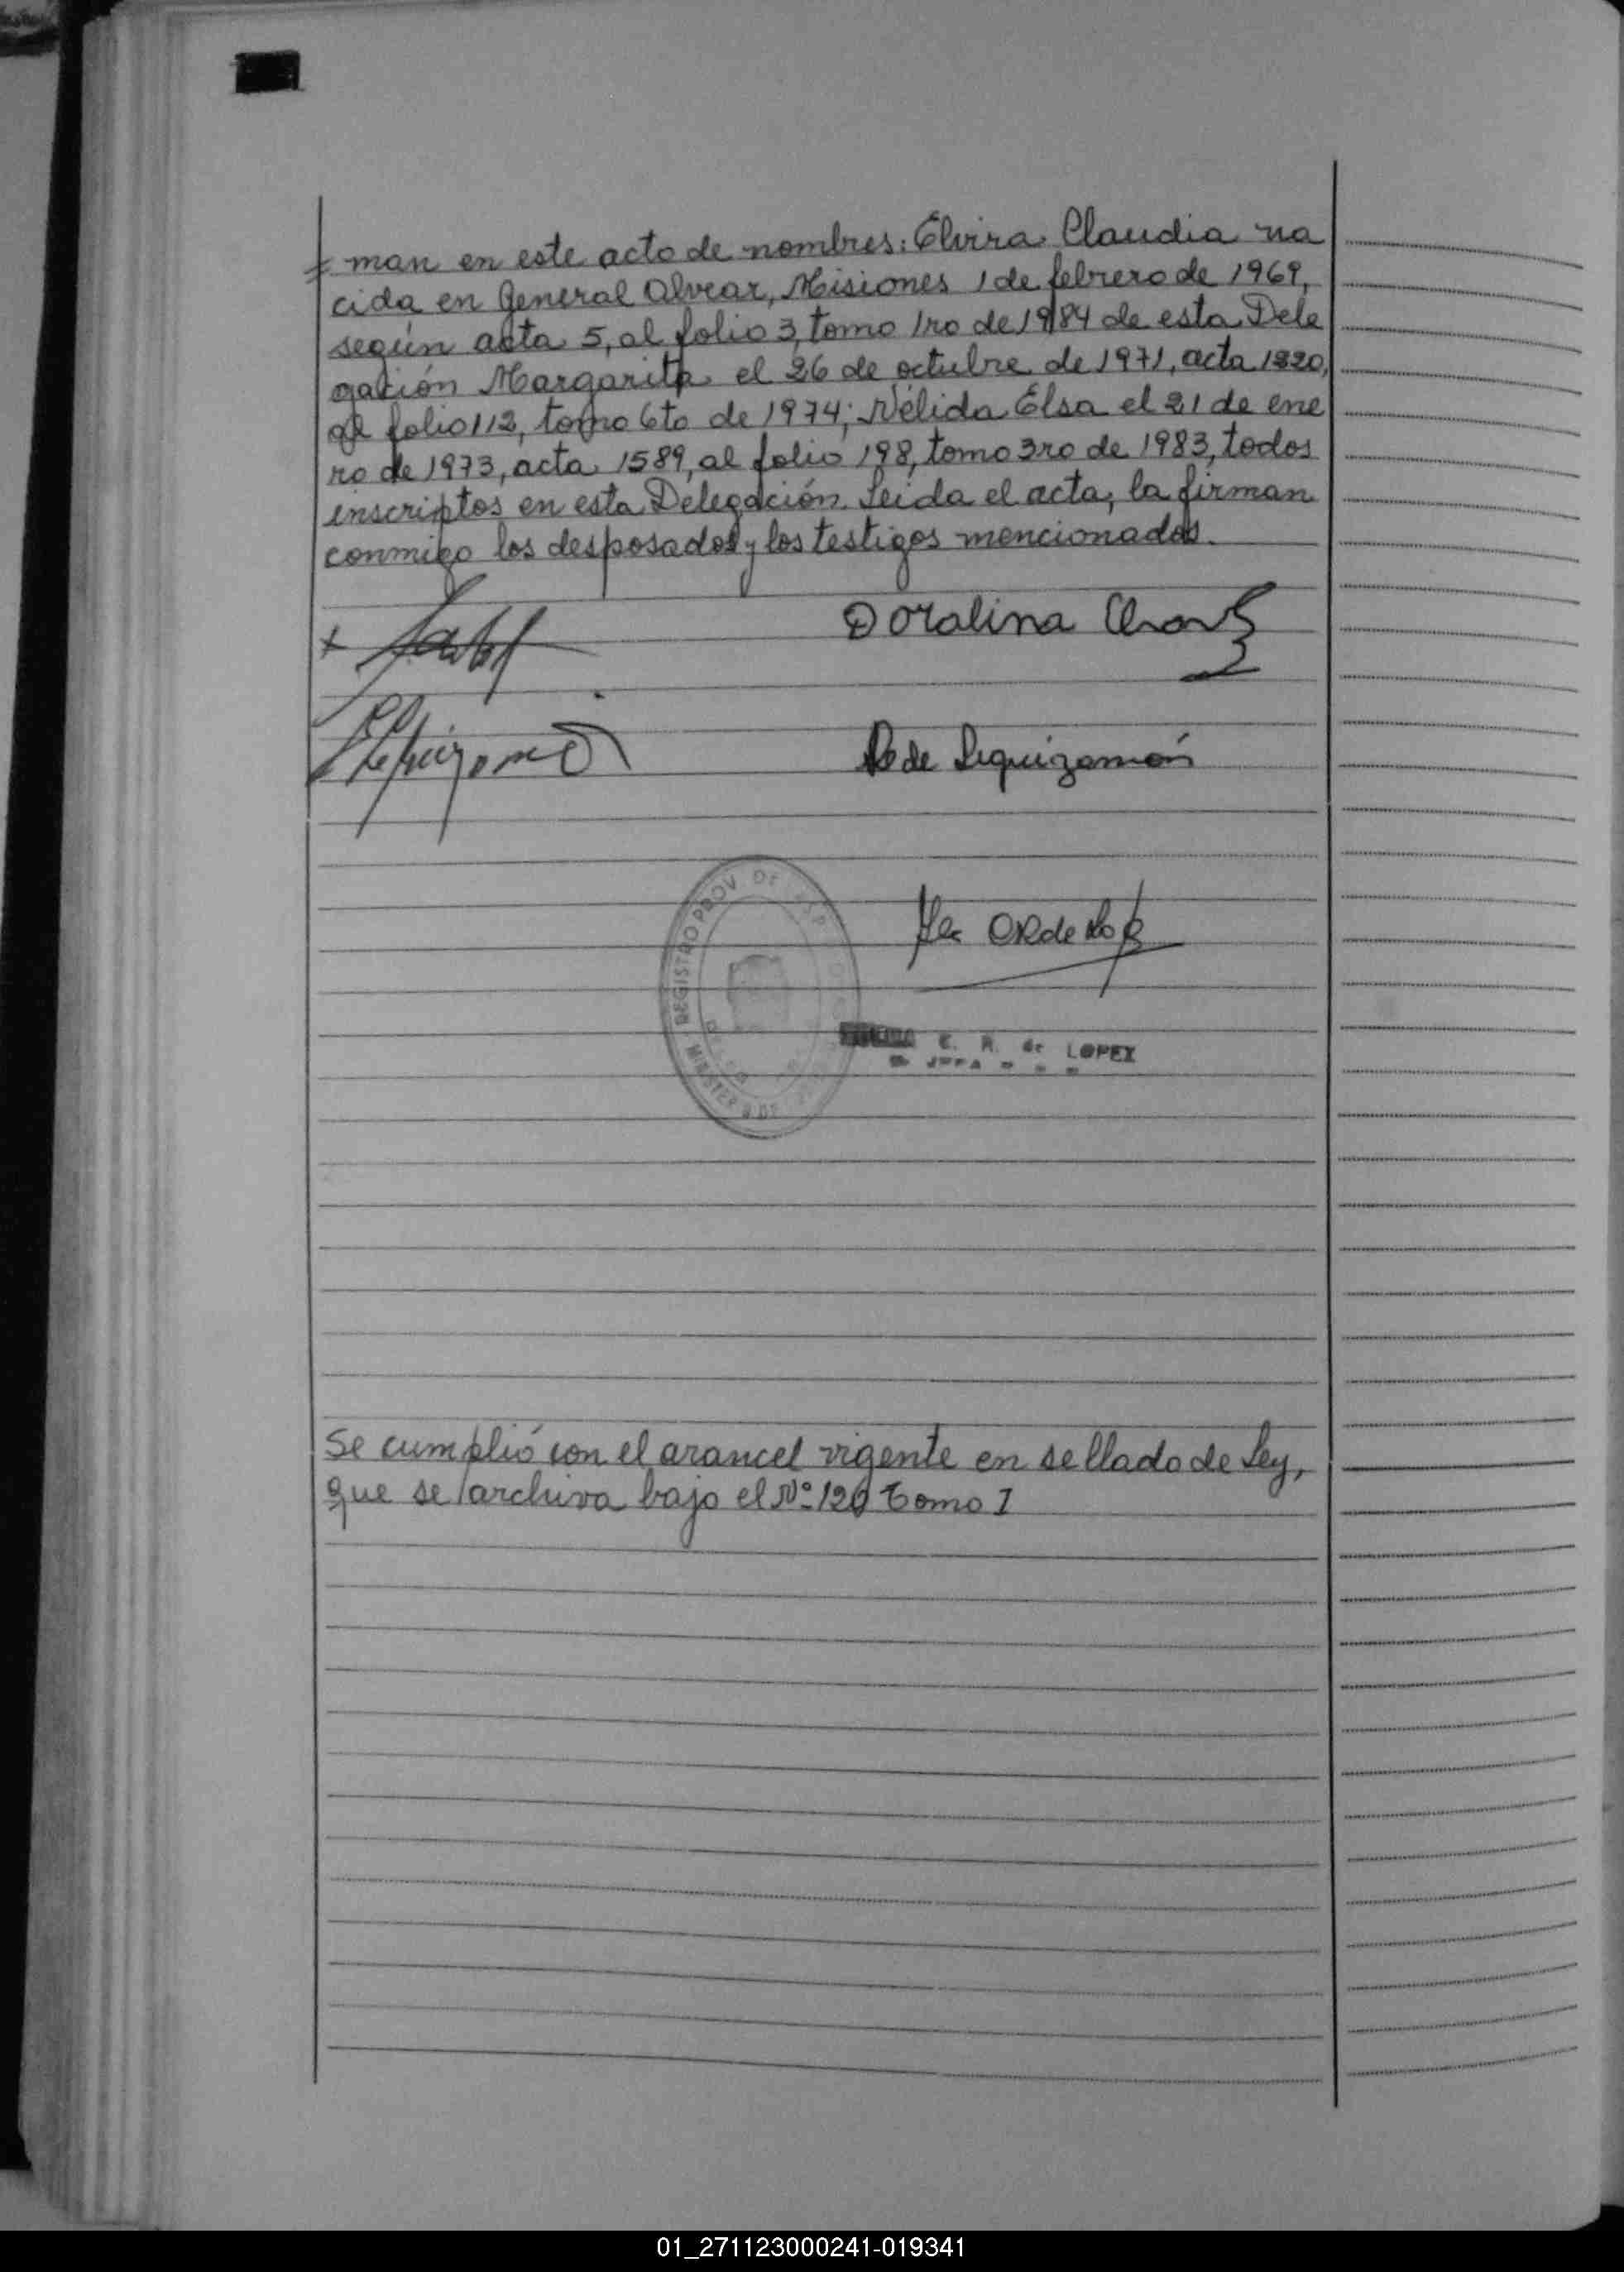 man en este acto de nombres: Elvira Claudia na
cida en General Alvear, Misiones 1 de febrero de 1969,
según acta 5, al folio 3, tomo 1ro de 1984 de esta Dele
gación Margarita el 26 de octubre de 1971, acta 1220,
al folio 112, tomo 6to de 1974; Nélida Elsa el 21 de ene
ro de 1973, acta 1589, al folio 198, tomo 3ro de 1983, todos
inscriptos en esta Delegación. Leída el acta, la firman
conmigo los desposados y los testigos mencionados.
Doralina
de Leguizamón
REGISTRO PROV. DE
E. R. de LOPEZ
JEFA
Se cumplió con el arancel vigente en sellado de Ley,
que se archiva bajo el Nº 120 Tomo I
01_271123000241-019341